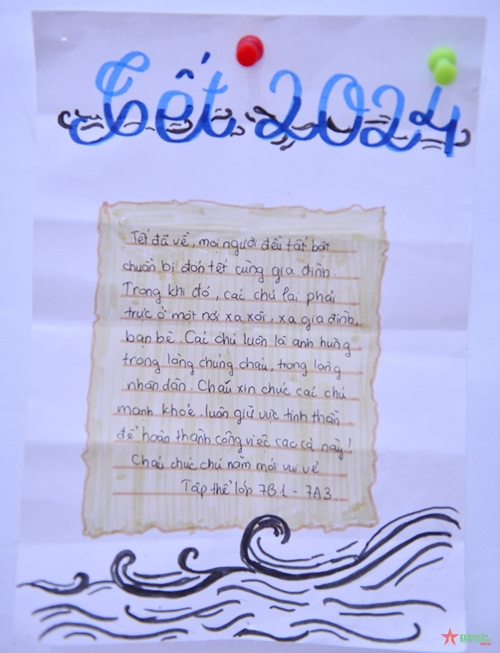 Tết 2024
Tết đã về, mọi người đều tất bật
chuẩn bị đón tết cùng gia đình.
Trong khi đó, các chú lại phải
trực ở một nơi xa xôi, xa gia đình,
bạn bè. Các chú luôn là anh hùng
trong lòng chúng cháu, trong lòng
nhân dân. Cháu xin chúc các chú
mạnh khoẻ, luôn giữ vực tinh thần
để hoàn thành công việc cao cả này!
Cháu chúc chú năm mới vui vẻ
Tập thể lớp 7B1 - 7A3